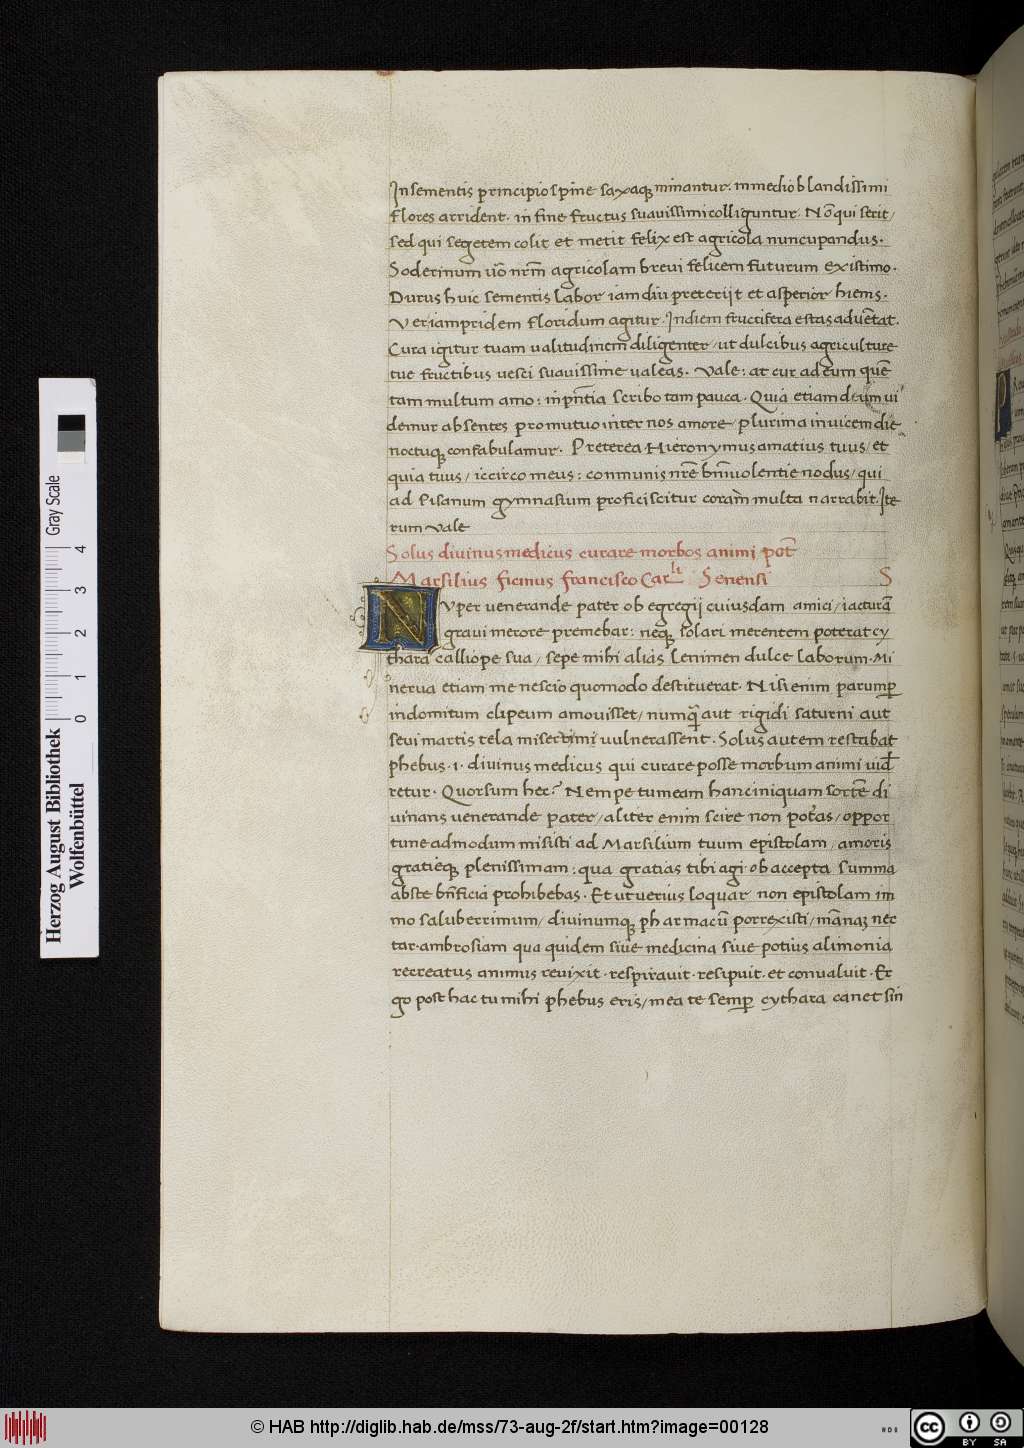 In sementis principio spine saxaq minantur. in medio blandissimi
flores arrident. in fine fructus suavissimi colliguntur. Nō qui serit/
sed qui segetem colit et metit felix est agricola nuncupandus.
Soderinum uō nrm̄ agricolam brevi felicem futurum existimo.
Durus huic sementis labor iam diu preteriit et asperior hiems.
Ver iampridem floridum agitur. In diem fructifera estas aduētat.
Cura igitur tuam ualitudinem diligenter/ut dulcibus agriculture
tue fructibus uesci suavissime ualeas. Vale: at cur ad eum quē
tam multum amo: in pn̄tia scribo tam pauca. Quia etiam dum ui
demur absentes pro mutuo inter nos amore plurima invicem die
noctuq confabulamur. Preterea Hieronymus amatius tuus/et
quia tuus/iccirco meus: conmunis nrē bn̄iuolentie nodus/qui
ad Pisanum gymnasium proficiscitur coram̄ multa narrabit. Ite
rum vale
Solus divinus medicus curare morbos animi pot̄
Marsilius ficinus francisco Carli Senensi S
Nuper venerande pater ob egregii cuiusdam amici/iacturā
gravi merore premebar: neq solari merentem poterat cy
thara calliope sua/sepe mihi alias lenimen dulce laborum. Mi
nerva etiam me nescio quomodo destituerat. Nisi enim parumper
indomitum clipeum amovisset/numq̄ aut rigidi saturni aut
sevi martis tela miserrimi vulnerassent. Solus autem restabat
phebus .i. divinus medicus qui curare posse morbum animi uid
retur. Quorsum hec? Nempe tu meam hanc iniquam sortē di
vinans venerande pater/aliter enim scire non poteras/oppor
tune admodum misisti ad Marsilium tuum epistolam/amoris
gratieq plenissimam: qua gratias tibi agi ob accepta summa
abste bn̄ficia prohibebas. Et ut verius loquar non epistolam im
mo saluberrimum/divinumq pharmacū porrexisti/mānaz nec
tar.ambrosiam qua quidem sive medicina sive potius alimonia
recreatus animus revixit.respiravit.resipuit.et convaluit. Er
go post hac tu mihi phebus eris/mea te semper cythara canet sin
Herzog August Bibliothek
Wolfenbüttel
0 1 2 3 4
Gray Scale
© HAB http://diglib.hab.de/mss/73-aug-2f/start.htm?image=00128
cc BY SA